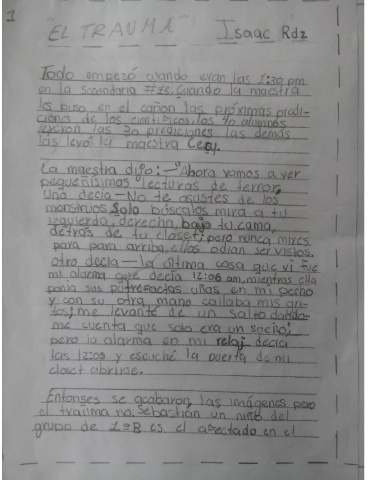 1
"EL TRAUMA" Isaac Rdz
Todo empezó cuando eran las 1:30 pm
en la secundaria #35. Cuando la maestra
les puso en el cañon las próximas predi-
ciones de los científicos, los 40 alumnos
leyeron las 30 prediciones las demás
las leyó la maestra Cecy.
La maestra dijo:-"Ahora vamos a ver
pequeñisimas lecturas de terror,
Uno decía-No te asustes de los
monstruos, Solo búscalos mira a tu
izquierda, derecha, bajo tu cama,
detrás de tu closet; pero nunca mires
para para arriba, ellos odian ser vistos.
otro decía-la última cosa que vi fue
mi alarma que decía 12:06 am, mientras ella
ponía sus putrefactas uñas en mi pecho
y con su otra mano callaba mis gri-
tos, me levante de un salto dando-
me cuenta que solo era un sueño,
pero la alarma en mi reloj decía
las 12:05 y escuché la puerta de mi
closet abrirse.
Entonses se acabaron las imágenes pero
el trauma no. Sebastián un niño del
grupo de 1°B es el afectado en el